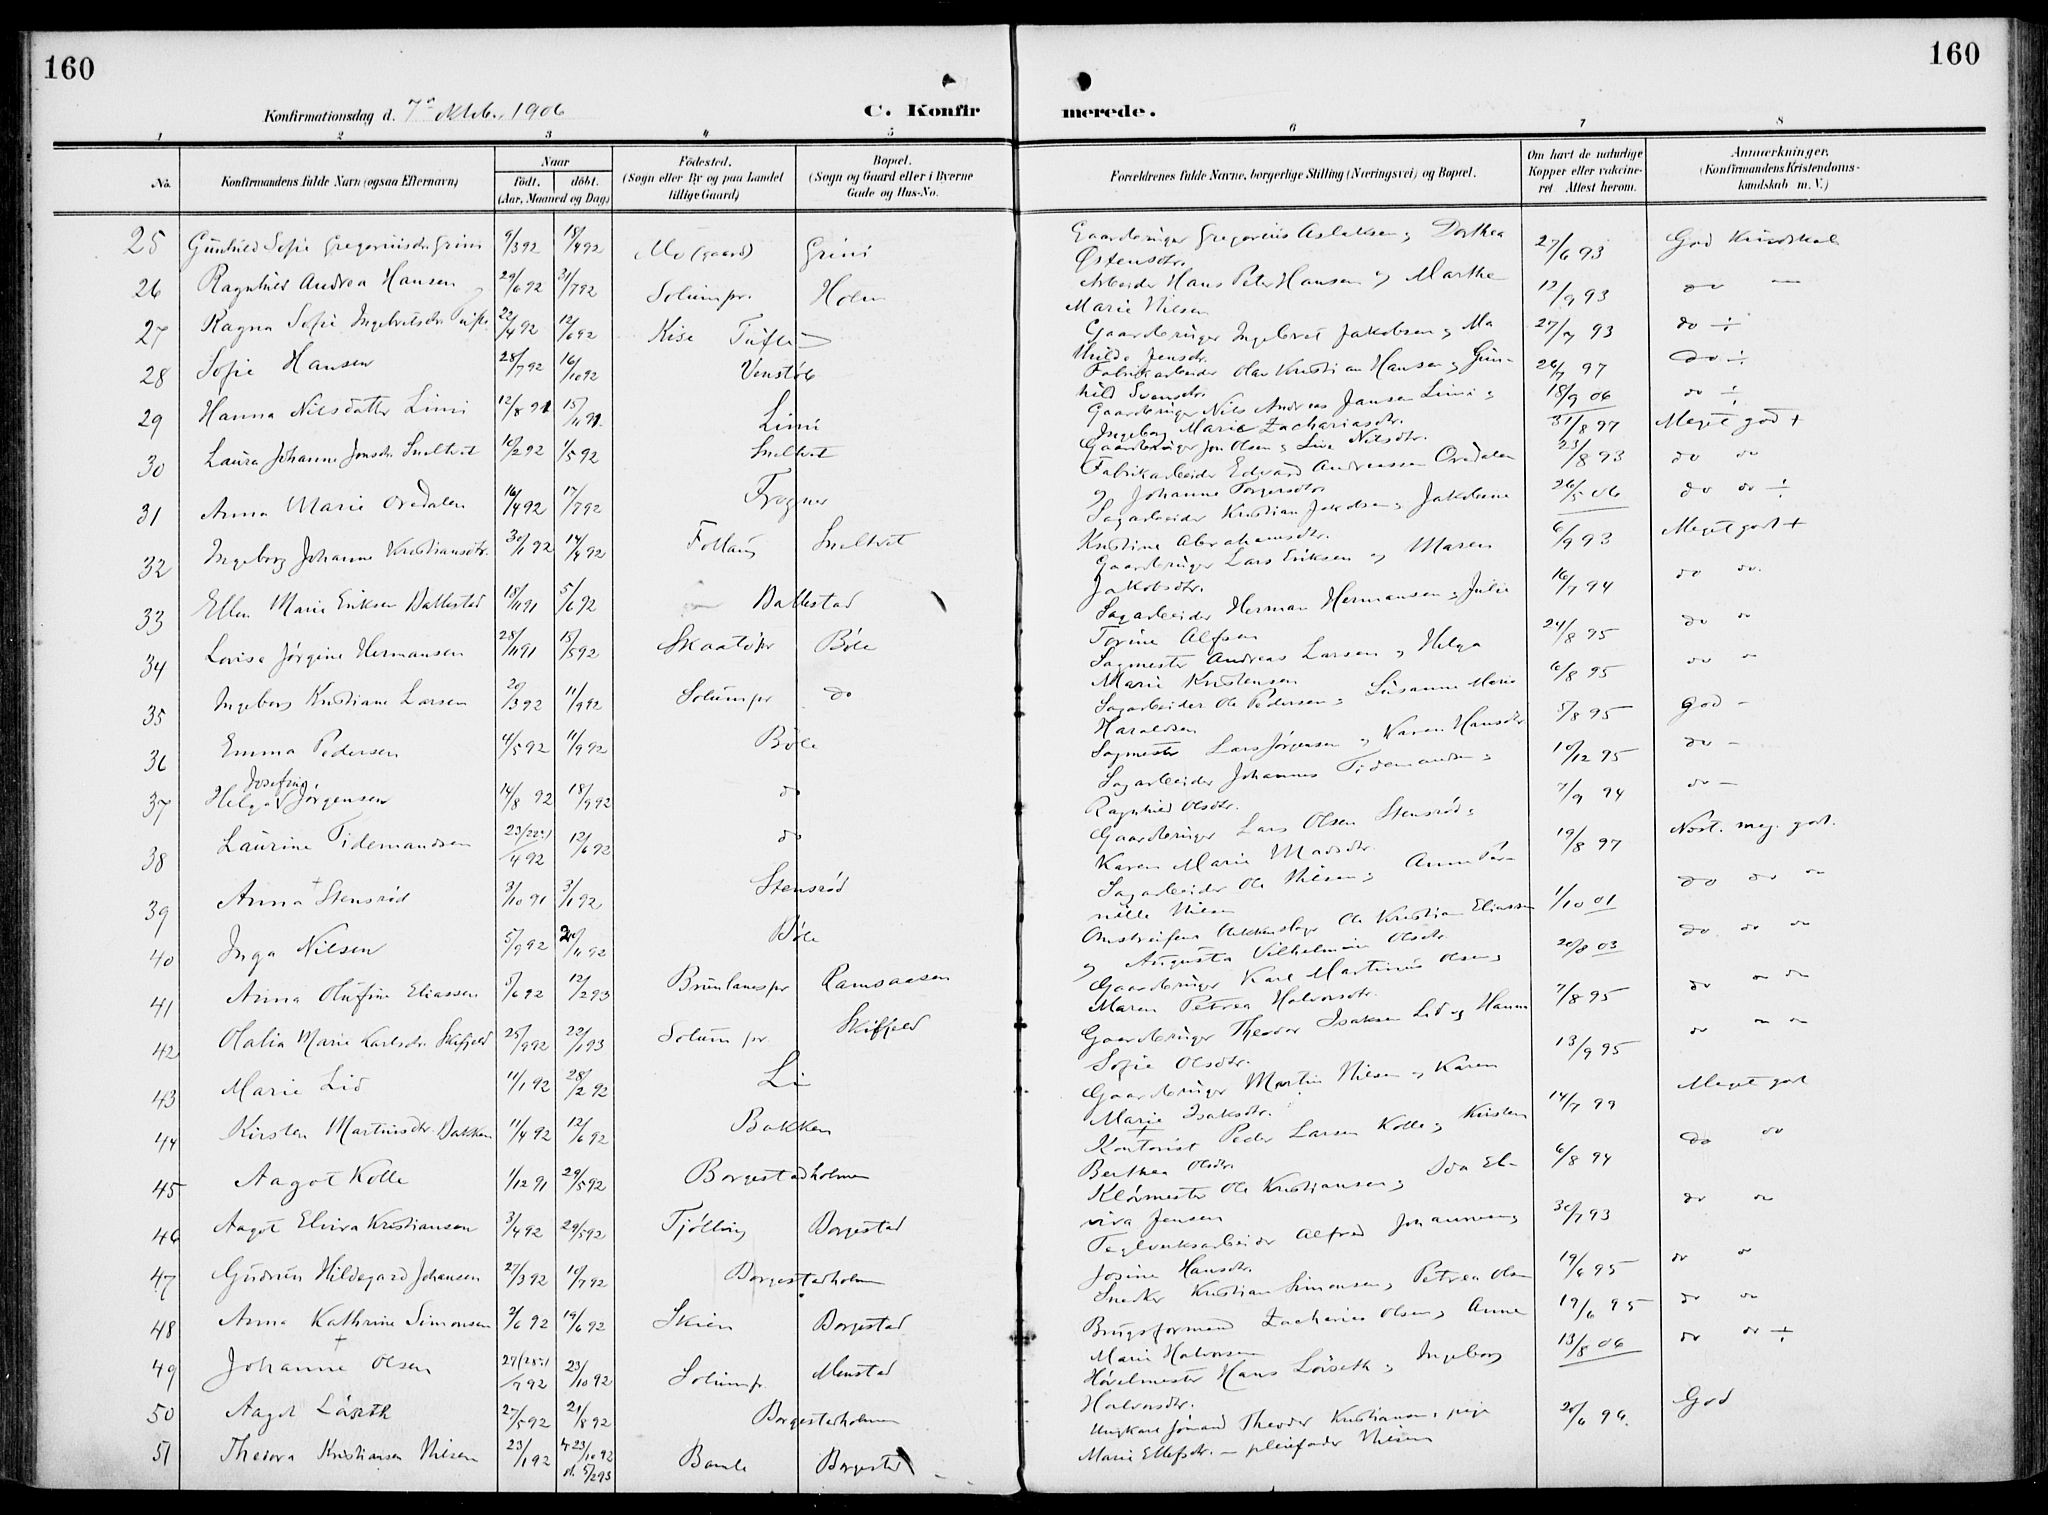 160
160
Konfirmationsdag d. 7de Oktob. 1906
C. Konfirmerede.
1 2 3 4 5 6 7 8
No.
Konfirmandens fulde Navn (ogsaa Efternavn)
Naar
født. døbt.
(Aar, Maaned og Dag)
Fødested.
(Sogn eller By og paa Landet tillige Gaard)
Bopæl.
(Sogn og Gaard eller i Byerne Gade og Hus-No.
Forældrenes fulde Navne, borgerlige Stilling (Næringsvei) og Bopæl.
Om havt de naturlige Kopper eller vakcineret Attest herom.
Anmærkninger.
(Konfirmandens Kristendomskundskab m. V.)
25 Gunhild Sofie Gregoriusdr. Grini 9/3 92 18/4 92 Mo (gaard) Grini Gaardbruger Gregorius Aslaksen og Dorthea Østensdtr. 27/6 93 God Kundskab
26 Ragnhild Andrea Hansen 29/6 92 31/7 92 Solum pr. Holm Arbeider Hans Peter Hansen og Marthe Marie Nilsen 12/9 93 do —
27 Ragna Sofie Ingebretsdr. Tufte 22/4 92 12/6 92 Kise Tufte Gaardbruger Ingebret Jakobsen og Mathilde Jensdr. 27/7 93 do ÷
28 Sofie Hansen 28/7 92 16/10 92 Venstøb Fabrikarbeider Olav Kristian Hansen og Gunhild Svensdr. 26/7 97 do ÷
29 Hanna Nilsdatter Limi 12/8 91 15/11 91 Limi Gaardbruger Nils Andreas Jansen Limi og Ingeborg Marie Zachariasdr. 18/9 06 do ÷
30 Laura Johanne Jonsdr. Sneltvet 10/2 92 1/5 92 Sneltvet Gaardbruger Jon Olsen og Live Nilsdtr. 31/8 97 Meget god +
31 Anna Marie Oredalen 16/4 92 17/7 92 Frogner Fabrikarbeider Edvard Andreassen Oredalen og Johanne Torgersdtr. 23/8 93 do do
32 Ingeborg Johanne Kristiansdtr. 30/1 92 14/4 92 Follaug Sneltvet Sagarbeider Kristian Jakobsen og Jakobine Kristine Abrahamsdtr. 26/5 06 do do ÷
33 Ellen Marie Eriksen Ballestad 18/11 91 5/6 92 Ballestad Gaardbruger Lars Eriksen og Maren Jakobsdtr. 6/9 93 Meget godt +
34 Lovisa Jørgine Hermansen 28/11 91 15/5 92 Skaatøpr Bøle Sagarbeider Herman Hermansen og Julie Torine Alfsen 16/7 94 do do.
35 Ingeborg Kristiane Larsen 20/3 92 11/9 92 Solum pr do Sagmester Andreas Larsen og Helga Marie Kristensen 24/8 95 do "
36 Emma Pedersen 4/5 92 11/9 92 Bøle Sagarbeider Ole Pedersen og Susanne Marie Haraldsen 6/8 95 do "
37 Helga Josefine Jørgensen 14/8 92 18/9 92 do Sagmester Lars Jørgensen og Karen Hansdtr 5/8 95 God –
38 Laurine Tidemandsen 23/(22?)/4 92 12/6 92 do Sagarbeider Johannes Tidemandsen og Ragnhild Olsdtr. 10/12 95 do –
39 Anna Stensrød 3/10 91 3/1 92 Stensrød Gaardbruger Lars Olsen Stensrød og Karen Marie Madsdtr. 7/9 94 do –
40 Inga Nilsen 5/9 92 20/11 92 Bøle Sagarbeider Ole Nilsen og Anne Pernille Nilsen 19/8 97 Nost. meg. godt.
41 Anna Olufine Eliassen 5/6 92 12/2 93 Brunlanes pr Ramsaasen Omstreifene Blikkenslager Ole Kristian Eliassen og Augusta Vilhelmine Olsdtr 1/10 01 do do "
42 Olalia Marie Karlsdr. Skifjeld 25/9 92 22/1 93 Solum pr. Skifjeld Gaardbruger Karl Martinus Olsen og Maren Petrea Halvorsdtr. 20/8 03 do do do
43 Marie Lid 11/1 92 28/2 92 Li Gaardbruger Theodor Isaksen Lid og Hanna Sofie Olsdtr. 7/8 95 do " do
44 Kirsten Martinsdtr. Bakken 11/4 92 12/6 92 Bakken Gaardbruger Martin Nilsen og Karen Marie Isaksdtr. 13/9 95 do " "
45 Aagot Kolle 1/12 91 29/5 92 Borgestadholmen Kontorist Peder Larsen Kolle og Kirsten Berthea Olsdtr. 14/7 99 Meget godt
46 Aagot Elvira Kristiansen 3/4 92 29/5 92 Tjølling Borgestad Kløvmester Ole Kristiansen og Ida Elvira Jensen 6/8 94 do do
47 Gudrun Hildegard Johansen 27/3 92 10/7 92 Borgestadholmen Teglverksarbeider Alfred Johannesen og Josine Hansdtr. 30/7 93 do "
48 Anna Kathrine Simonsen 2/6 92 19/6 92 Skien Borgestad Snedker Kristian Simonsen og Petrea Olsen 19/6 95 do "
49 Johanne Olsen 27/(28?)/7 92 23/10 92 Solum pr. Menstad Brugsformand Zacharias Olsen og Anne Marie Halvorsen 19/6 95 do do
50 Aagot Løiseth 27/5 92 21/8 92 Borgestadholmen Høvelmester Hans Løiseth og Ingeborg Halvorsdtr. 13/8 06 do do ÷
51 Theodora Kristiansen Nilsen 23/1 92 23/10 92 st. 5/2 93 Bamle Borgestad Ungkarl Jomand Theodor Kristiansen, pige Marie Ellefsdtr. – pleiefader Nilsen 20/6 96. God